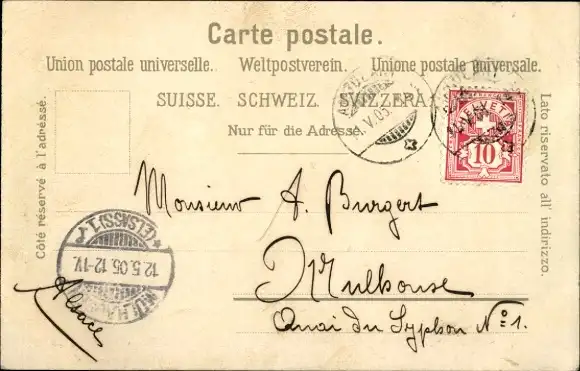 Carte postale.
Union postale universelle. Weltpostverein. Unione postale universale.
SUISSE. SCHWEIZ. SVIZZERA.
Nur für die Adresse.
Côté réservé à l'adresse.
Lato riservato all' indirizzo.
HELVETIA
10
V.05
Monsieur A. Burgert
Mulhouse
Quai du Syphon No 1.
Alsace
(ELSASS) 1.
12.5.05. 12-1V.